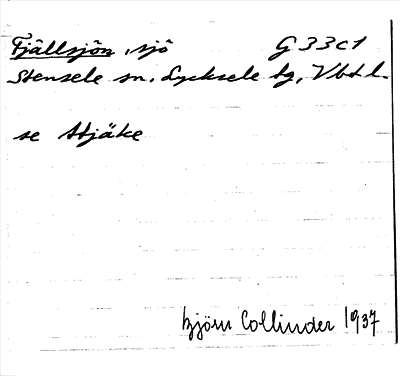 Fjällsjön, sjö G 33 c 1
Stensele sn. Lycksele tg, Vbtl.
se Atjäke
Björn Collinder 1937